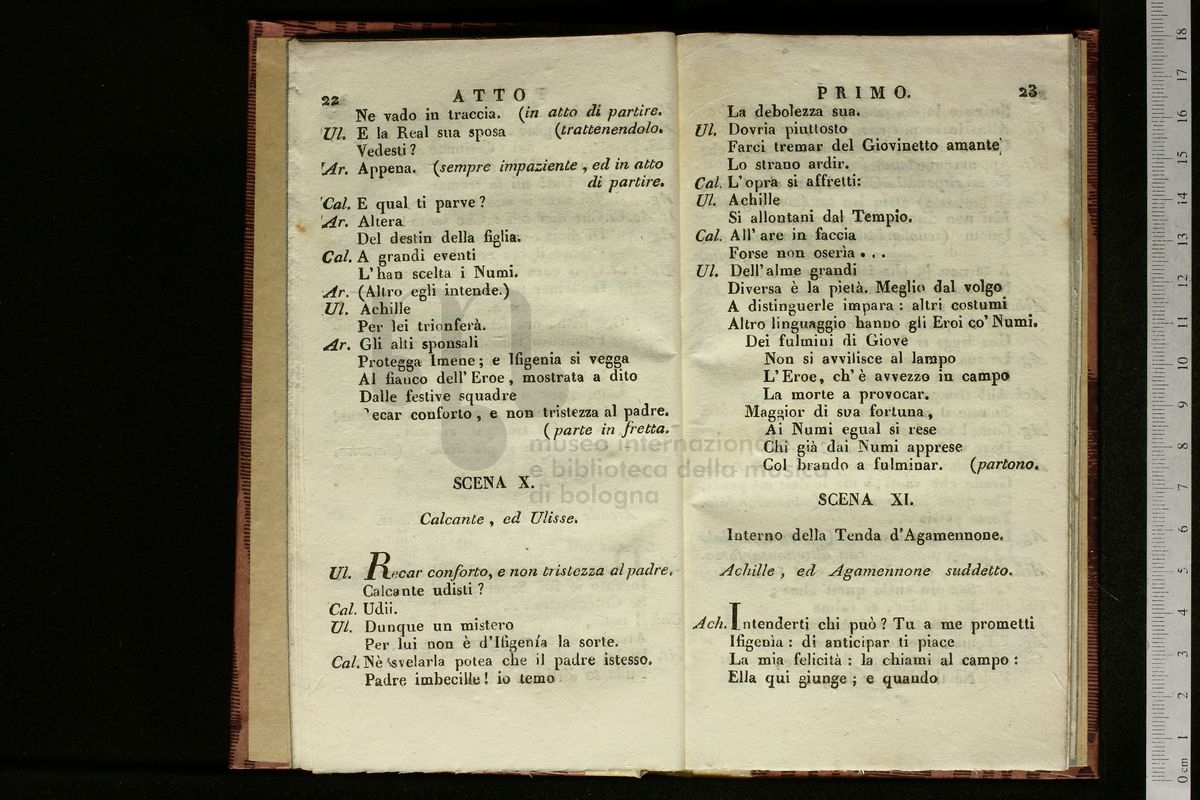 22 ATTO
Ne vado in traccia. (in atto di partire.
Ul. E la Real sua sposa (trattenendolo.
Vedesti?
Ar. Appena. (sempre impaziente, ed in atto
di partire.
Cal. E qual ti parve?
Ar. Altera
Del destin della figlia.
Cal. A grandi eventi
L'han scelta i Numi.
Ar. (Altro egli intende.)
Ul. Achille
Per lei trionferà.
Ar. Gli alti sponsali
Protegga Imene; e Ifigenia si vegga
Al fianco dell'Eroe, mostrata a dito
Dalle festive squadre
ecar conforto, e non tristezza al padre.
(parte in fretta.
SCENA X.
Calcante, ed Ulisse.
Ul. Recar conforto, e non tristezza al padre.
Calcante udisti?
Cal. Udii.
Ul. Dunque un mistero
Per lui non è d'Ifigenía la sorte.
Cal. Nè svelarla potea che il padre istesso.
Padre imbecille! io temo
PRIMO. 23
La debolezza sua.
Ul. Dovria piuttosto
Farci tremar del Giovinetto amante
Lo strano ardir.
Cal. L'opra si affretti:
Ul. Achille
Si allontani dal Tempio.
Cal. All'are in faccia
Forse non oserìa...
Ul. Dell'alme grandi
Diversa è la pietà. Meglio dal volgo
A distinguerle impara: altri costumi
Altro linguaggio hanno gli Eroi co' Numi.
Dei fulmini di Giove
Non si avvilisce al lampo
L'Eroe, ch'è avvezzo in campo
La morte a provocar.
Maggior di sua fortuna,
Ai Numi egual si rese
Chi già dai Numi apprese
Col brando a fulminar. (partono.
SCENA XI.
Interno della Tenda d'Agamennone.
Achille, ed Agamennone suddetto.
Ach. Intenderti chi può? Tu a me prometti
Ifigenìa: di anticipar ti piace
La mia felicità: la chiami al campo:
Ella qui giunge; e quando
museo internazionale
e biblioteca della musica
di bologna
0 cm 1 2 3 4 5 6 7 8 9 10 11 12 13 14 15 16 17 18